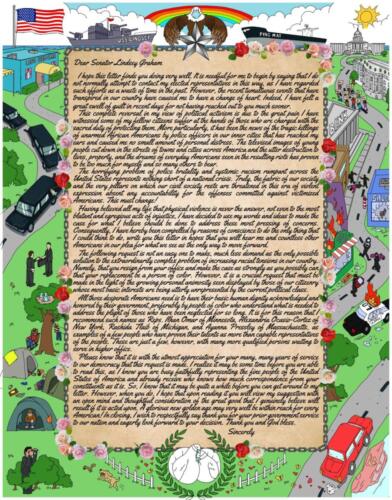 Dear Senator Lindsey Graham
I hope this letter finds you doing very well. It is needful for me to begin by saying that I do
not normally attempt to contact my elected representatives in this way, as I have regarded
such efforts as a waste of time in the past. However, the recent tumultuous events that have
transpired in our country have caused me to have a change of heart. Indeed, I have felt a
great swell of guilt in recent days for not having reached out to you much sooner.
This complete reversal in my view of political activism is due to the great pain I have
witnessed some of my fellow citizens suffer at the hands of those who are charged with the
sacred duty of protecting them. More particularly, it has been the news of the tragic killings
of unarmed African Americans by police officers in our inner cities that has reached my
ears and caused me no small amount of personal distress. The televised images of young
people cut down in the streets of towns and cities across America and the utter destruction to
lives, property, and the dreams of everyday Americans seen in the resulting riots has proven
to be too much for myself and so many others to bear.
The horrifying problem of police brutality and systemic racism rampant across the
United States represents nothing short of a national crisis. Truly, the fabric of our society
and the very pillars on which our civil society rests are threatened in this era of violent
oppression absent any accountability for the offenses committed against victimized
Americans. This must change.
Having believed all my life that physical violence is never the answer, not even to the most
blatant and egregious acts of injustice, I have decided to use my words and ideas to make the
case for what I believe should be done to address these most pressing of concerns.
Consequently, I have hereby been compelled by reasons of conscience to do the only thing that
I could think to do, write you this letter in hopes that you will hear me and countless other
Americans in our plea for what we see as the only way to move forward.
The following request is not an easy one to make, much less demand as the only possible
solution to the extraordinarily complex problem of increasing racial tensions in our country.
Namely, that you resign from your office and make the case as strongly as you possibly can
that your replacement be a person of color. However, it is a crucial request that must be
made in the light of the growing personal animosity seen displayed by those of our citizenry
whose most basic interests are being utterly unrepresented by the current political class.
All those desperate Americans need is to have their basic human dignity acknowledged and
honored by their government, preferably by people of color who understand what is needed to
address the plight of those who have been neglected for so long. It is for this reason that I
recommend such names as Reps. Ilhan Omar of Minnesota, Alexandria Ocasio-Cortez of
New York, Rashida Tlaib of Michigan, and Ayanna Pressley of Massachusetts, as
examples of a few people who have proven their talents as more than capable representatives
of the people. These are just a few, however, with many more qualified persons waiting to
serve in higher office.
Please know that it is with the utmost appreciation for your many, many years of service
to our democracy that this request is made. I realize it may be some time before you are able
to read this, as I know you are busy faithfully representing the fine people of the United
States of America and already receive who knows how much correspondence from your
constituents as it is. So, I know that it may be quite a while before you can get around to my
letter. However, when you do, I hope that upon reading it you will view my suggestion with
an open mind and thoughtful consideration of the great good that I genuinely believe will
result if it is acted upon. A glorious new golden age may very well be within reach for every
American! In closing, I wish to respectfully say thank you for your prior government service
to our nation and eagerly look forward to your decision. Thank you and God bless.
Sincerely